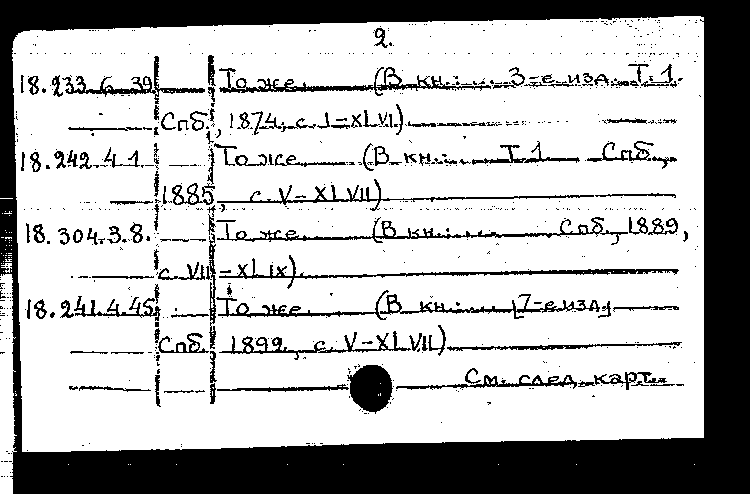 2.
18.233.6.39 То же. (В кн.: ... 3-е изд. Т. 1.
Спб., 1874, с. I-XLVI).
18.242.4.1. То же. (В кн.: ... Т. 1 Спб.,
1885, с. V-XLVII).
18.304.3.8. То же. (В кн.: ... Спб., 1889,
с. VII-XLIX).
18.241.4.45. То же. (В кн.: ... [7-е изд.]
Спб., 1899, с. V-XLVII).
См. след. карт.